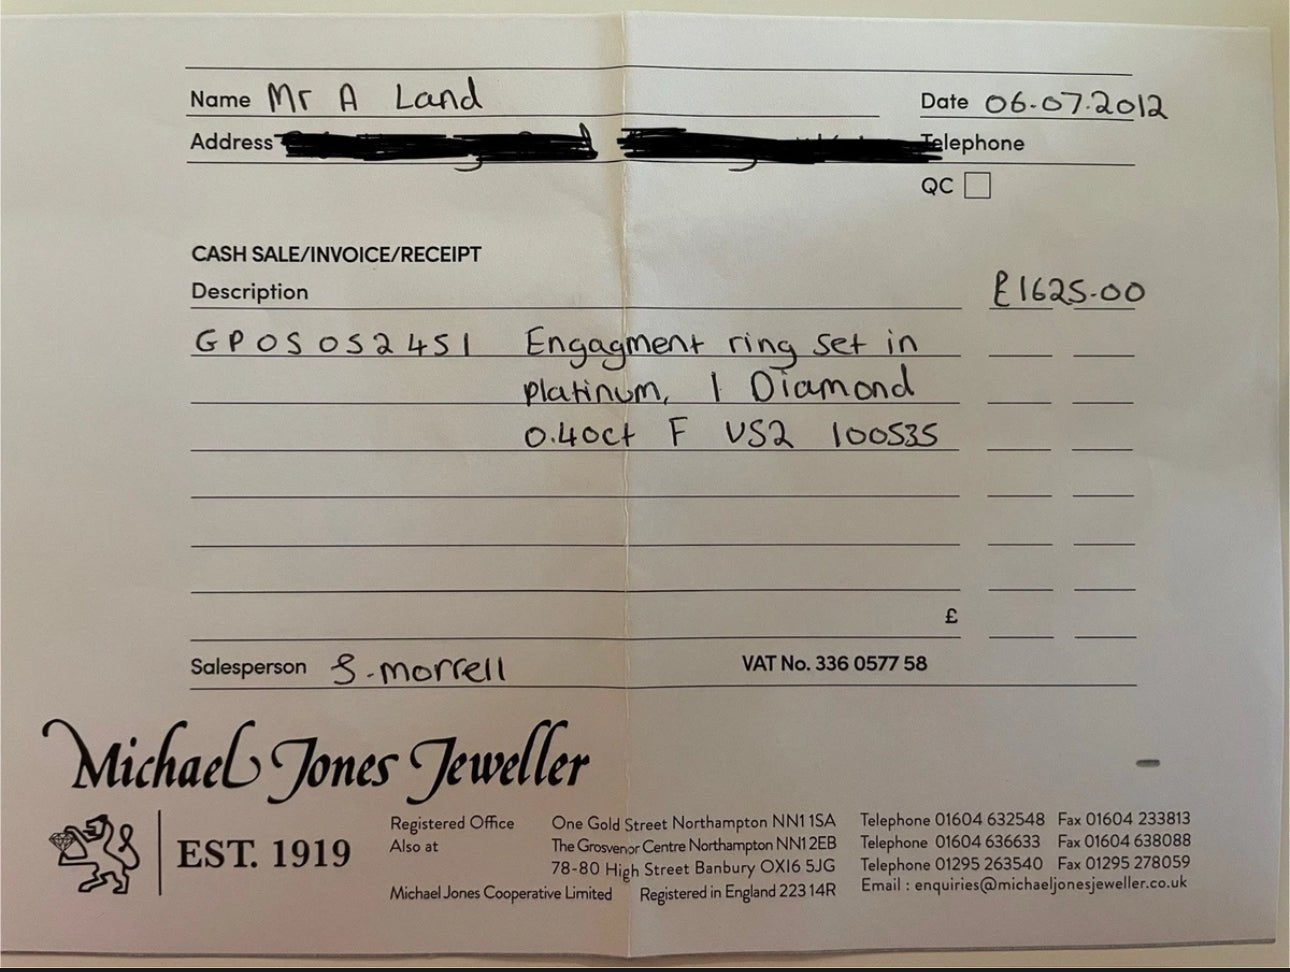 Name Mr A Land Date 06.07.2012
Address Telephone
QC
CASH SALE/INVOICE/RECEIPT
Description £1625.00
GPOS052451 Engagment ring set in
platinum, 1 Diamond
0.40ct F VS2 100535
£
Salesperson S. morrell VAT No. 336 0577 58
Michael Jones Jeweller
EST. 1919
Registered Office One Gold Street Northampton NN1 1SA Telephone 01604 632548 Fax 01604 233813
Also at The Grosvenor Centre Northampton NN1 2EB Telephone 01604 636633 Fax 01604 638088
78-80 High Street Banbury OX16 5JG Telephone 01295 263540 Fax 01295 278059
Michael Jones Cooperative Limited Registered in England 22314R Email : enquiries@michaeljonesjeweller.co.uk